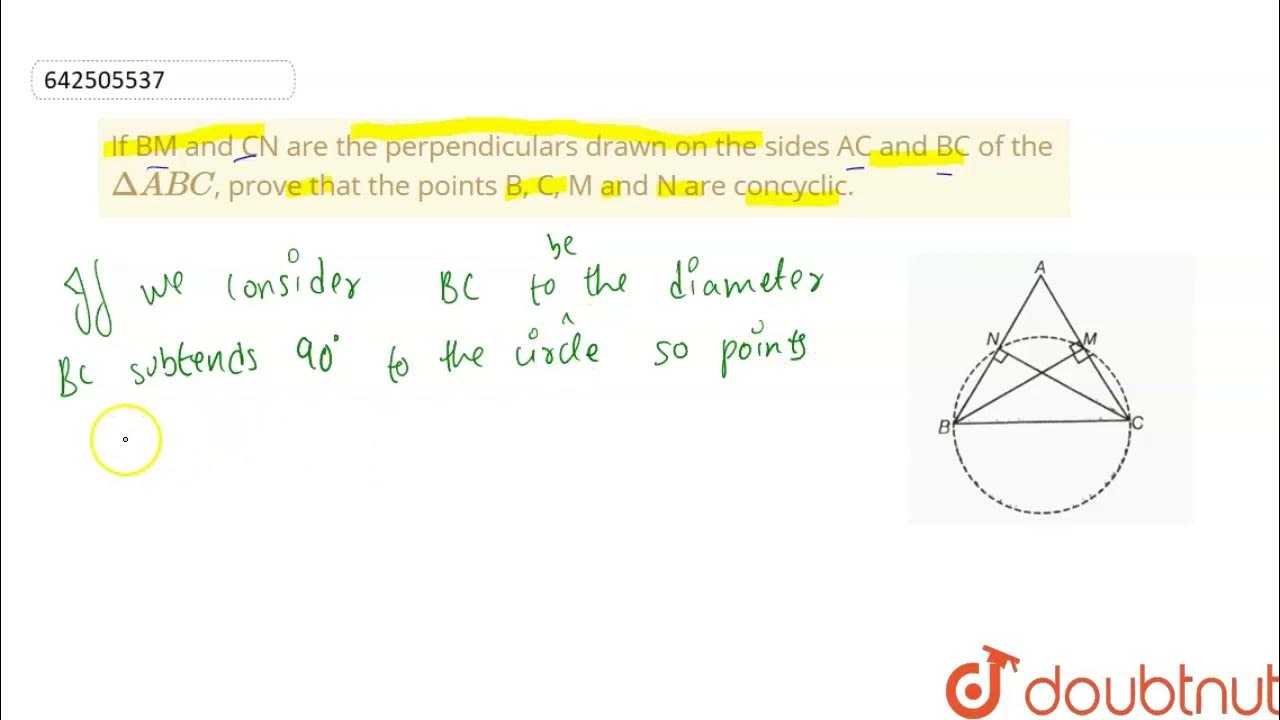 642505537
If BM and CN are the perpendiculars drawn on the sides AC and BC of the
ΔABC, prove that the points B, C, M and N are concyclic.
be
If we consider BC to ^ the diameter
BC subtends 90° to the circle so points
A
N
M
B
C
doubtnut